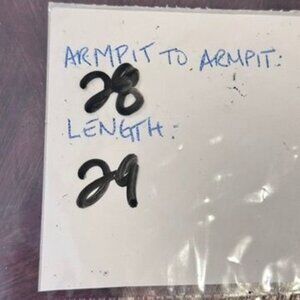 ARMPIT TO ARMPIT:
28
LENGTH:
29